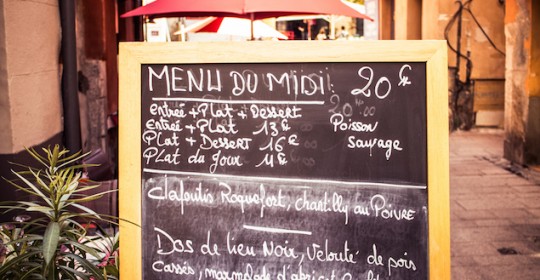 MENU DU MIDI 20€
Entrée + Plat + Dessert 20.00
Entrée + Plat 13€ Poisson
Plat + Dessert 16€ Sauvage
Plat du Jour 11€
Clafoutis Roquefort, chantilly au POIVRE
Dos de lieu Noir, Velouté de pois
cassés, marmelade d'abricot